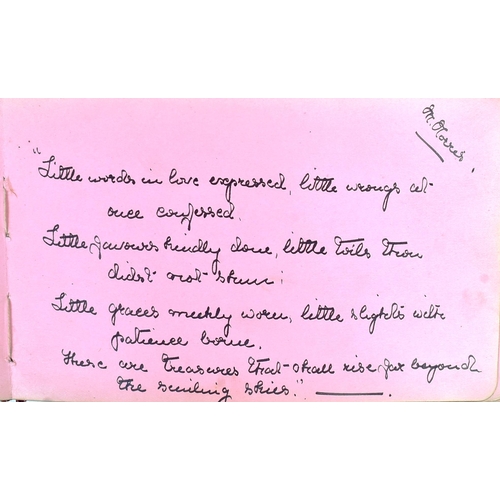 M. Norris.
"Little words in love expressed, little wrongs at
once confessed.
Little favours kindly done, little toils thou
didst not shun;
Little graces meekly worn, little slights with
patience borne.
These are treasures that shall rise far beyond
the smiling skies."